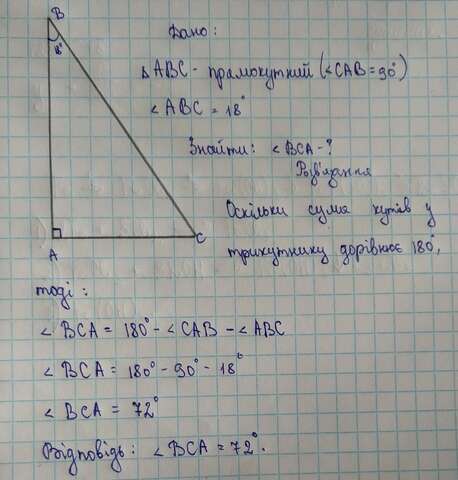 B
18°
A
C
Дано:
△ABC - прямокутний (∠CAB = 90°)
∠ABC = 18°
Знайти: ∠BCA - ?
Розв'язання
Оскільки сума кутів у
трикутнику дорівнює 180°,
тоді:
∠BCA = 180° - ∠CAB - ∠ABC
∠BCA = 180° - 90° - 18°
∠BCA = 72°
Відповідь: ∠BCA = 72°.